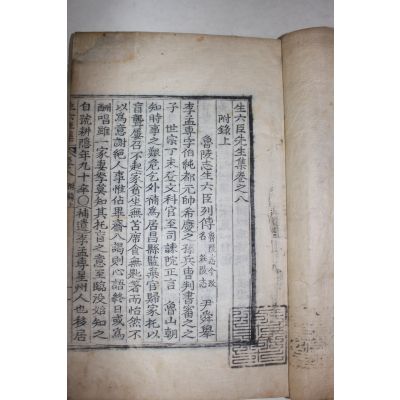 生六臣先生集卷之八
附錄上
魯陵志生六臣列傳 魯陵志今改名莊陵志 尹舜舉
李孟專字伯純都元帥希慶之孫兵曹判書審之之
子 世宗丁未登文科官至司諫院正言 魯山朝
知時事之艱危乞外補爲居昌縣監棄官歸家托以
盲聾屢召不無苫席食無匙箸而怡然不
以爲意謝絶人事惟佔畢齋八謁則心語終日或爲
酬唱雖一家妻孥莫知其托盲之意至臨沒始知之
自號耕隱年九十卒○補遺李孟專星州人也移居